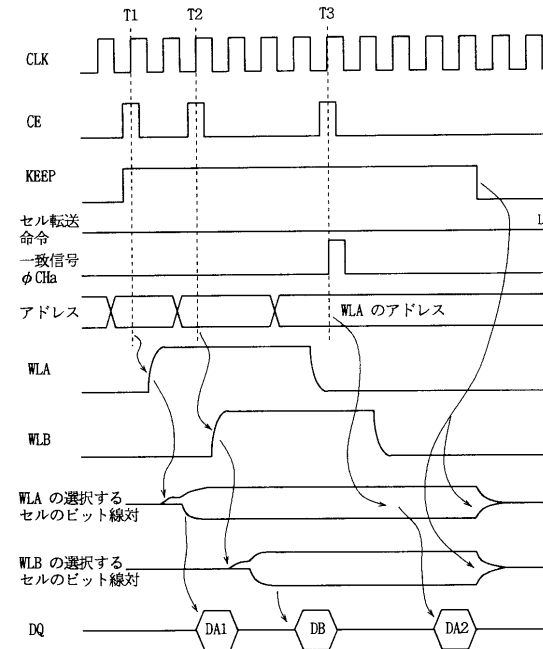 T1 T2 T3
CLK
CE
KEEP
セル転送
命令
L
一致信号
φCHa
アドレス
WLA のアドレス
WLA
WLB
WLA の選択する
セルのビット線対
WLB の選択する
セルのビット線対
DQ DA1 DB DA2